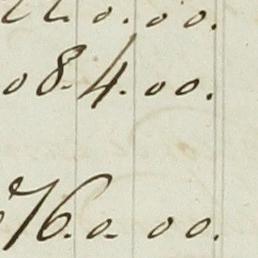 22.0.00.
08.4.00.
076.0.00.